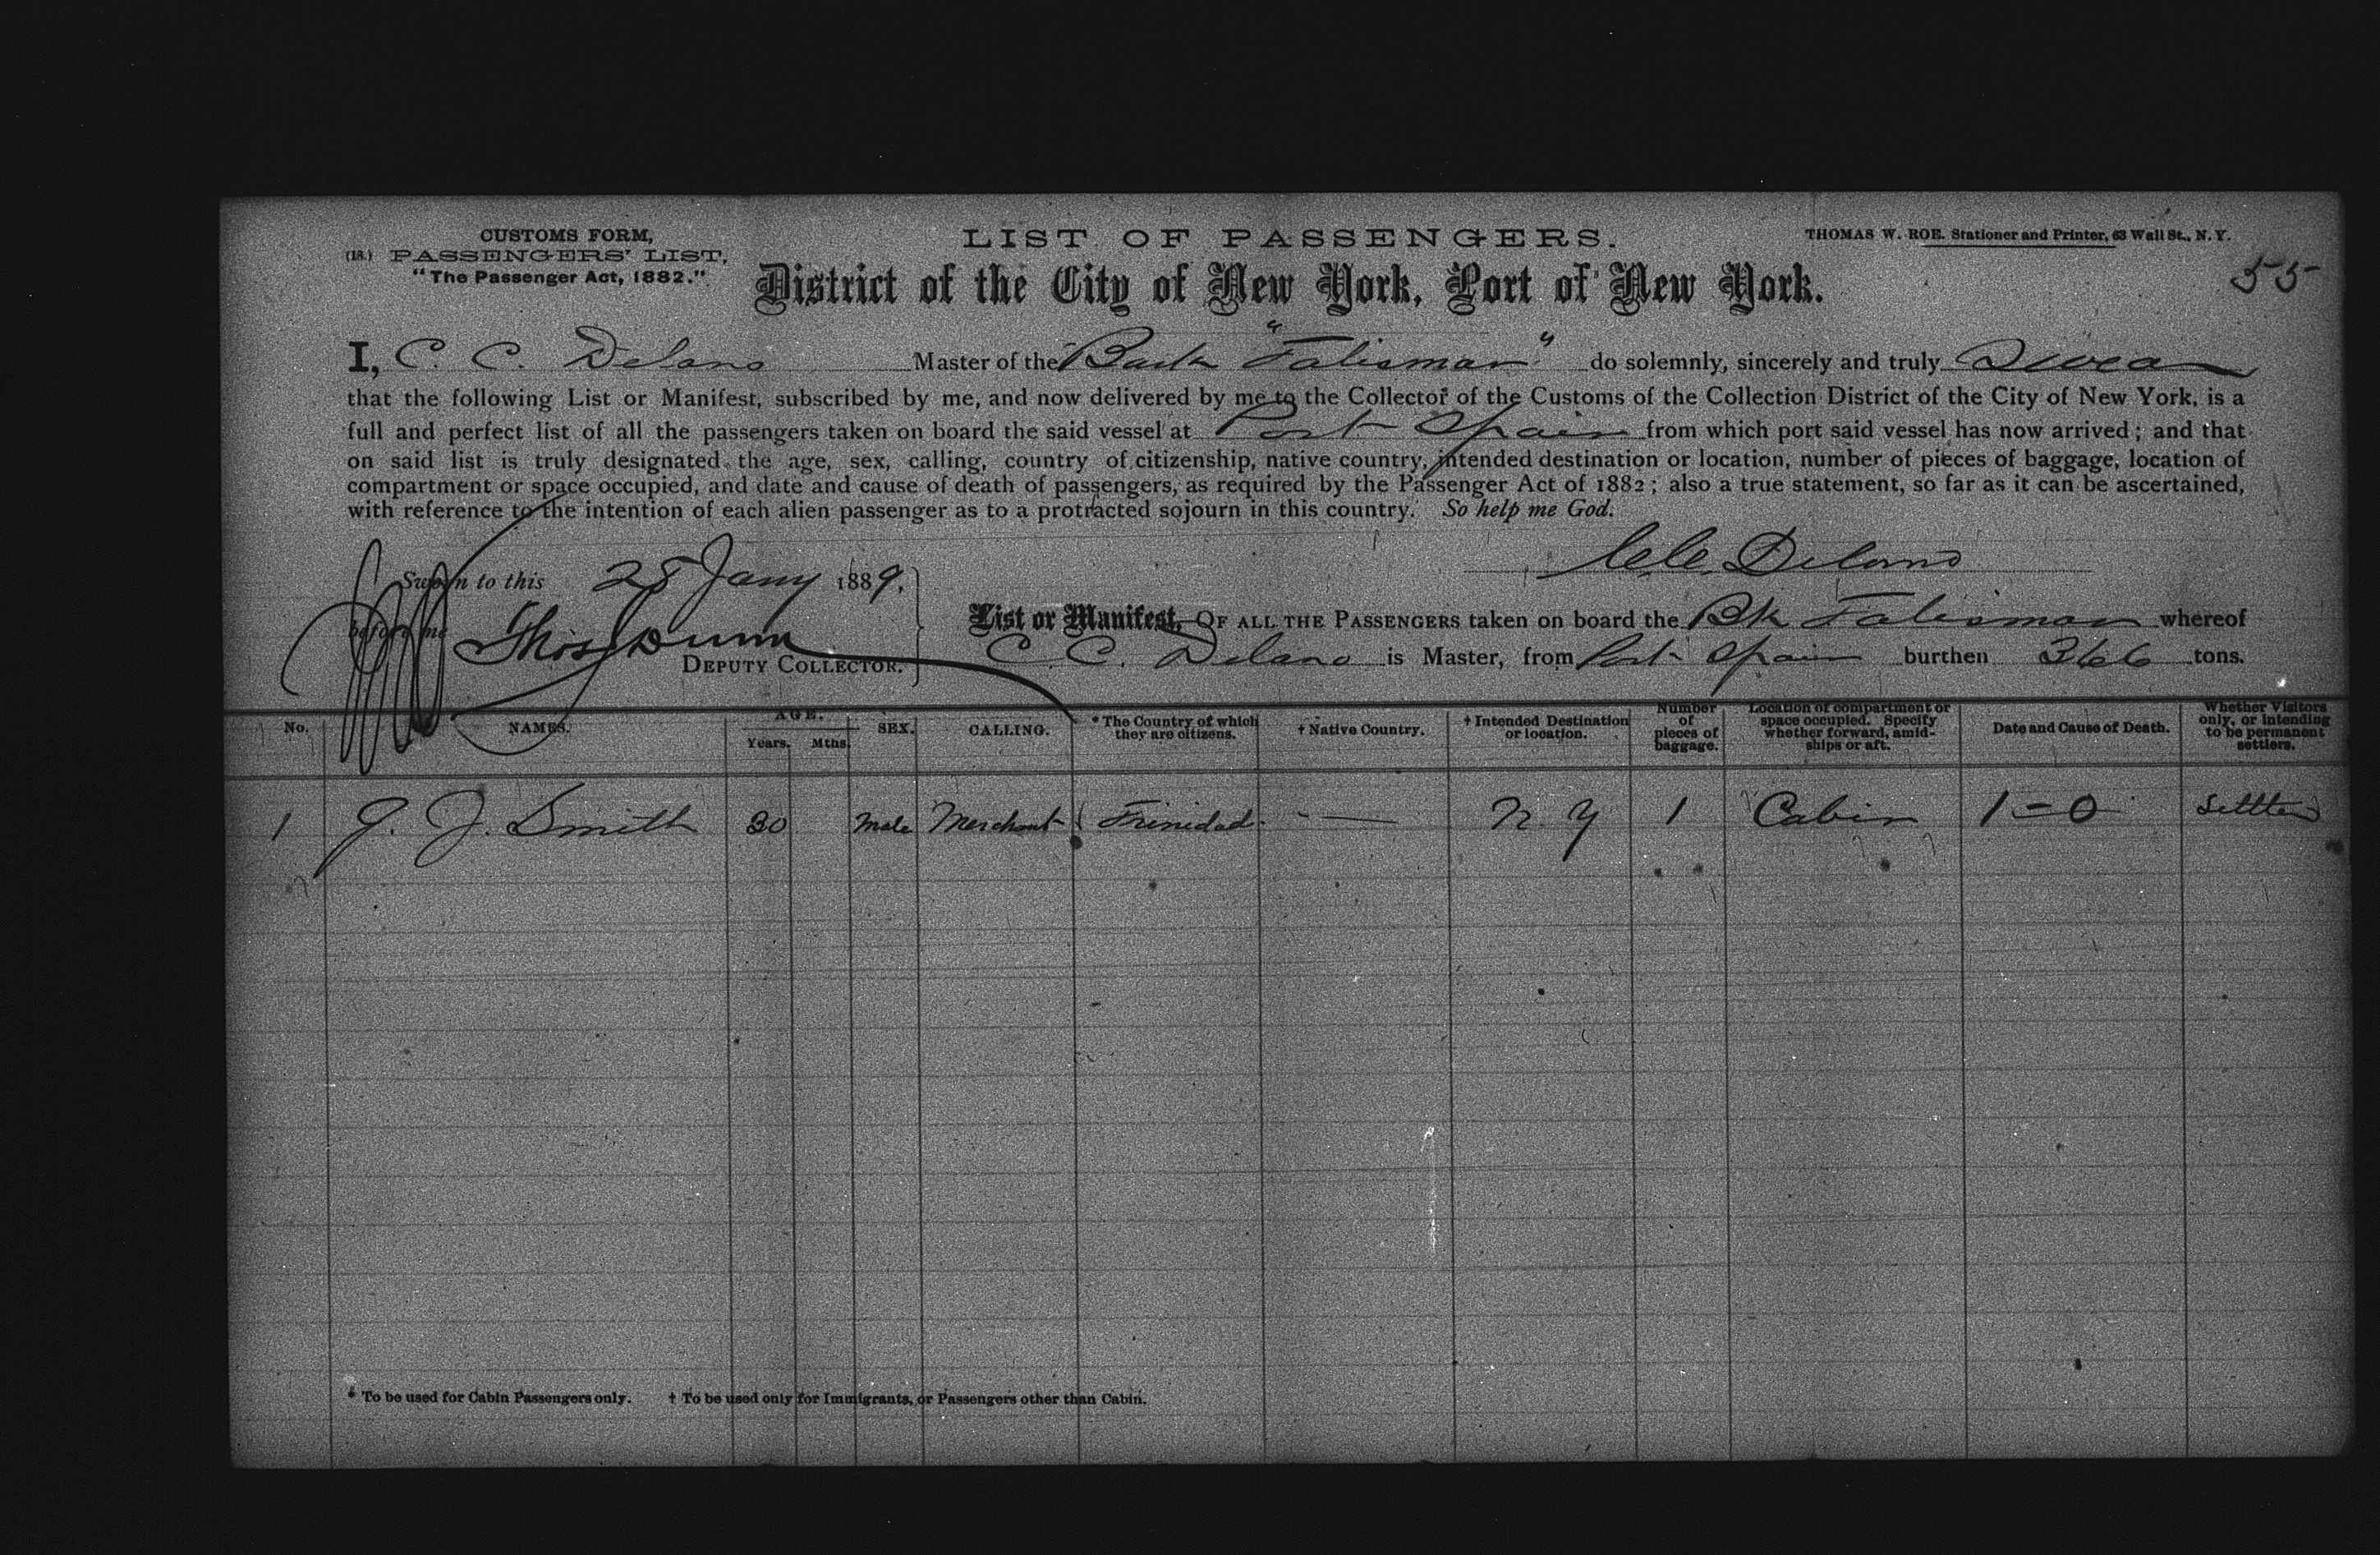 CUSTOMS FORM,
(18.) PASSENGERS' LIST,
"The Passenger Act, 1882."
LIST OF PASSENGERS.
THOMAS W. ROE. Stationer and Printer, 63 Wall St., N. Y.
55
District of the City of New York, Port of New York.
I, C. C. Delano Master of the Bark "Talisman" do solemnly, sincerely and truly Swear
that the following List or Manifest, subscribed by me, and now delivered by me to the Collector of the Customs of the Collection District of the City of New York, is a
full and perfect list of all the passengers taken on board the said vessel at Port Spain from which port said vessel has now arrived; and that
on said list is truly designated the age, sex, calling, country of citizenship, native country, intended destination or location, number of pieces of baggage, location of
compartment or space occupied, and date and cause of death of passengers, as required by the Passenger Act of 1882; also a true statement, so far as it can be ascertained,
with reference to the intention of each alien passenger as to a protracted sojourn in this country. So help me God.
C. C. Delano
Sworn to this 28 Jany 1889,
before me Thos Dunn
DEPUTY COLLECTOR.
List or Manifest, OF ALL THE PASSENGERS taken on board the Bk Talisman whereof
C. C. Delano is Master, from Port Spain burthen 366 tons.
No. NAMES. AGE. Years. Mths. SEX. CALLING. * The Country of which they are citizens. † Native Country. † Intended Destination or location. Number of pieces of baggage. Location of compartment or space occupied. Specify whether forward, amidships or aft. Date and Cause of Death. Whether Visitors only, or intending to be permanent settlers.
1 J. J. Smith 30 Male Merchant Trinidad — N. Y 1 Cabin 1=0 Settler
* To be used for Cabin Passengers only. † To be used only for Immigrants, or Passengers other than Cabin.